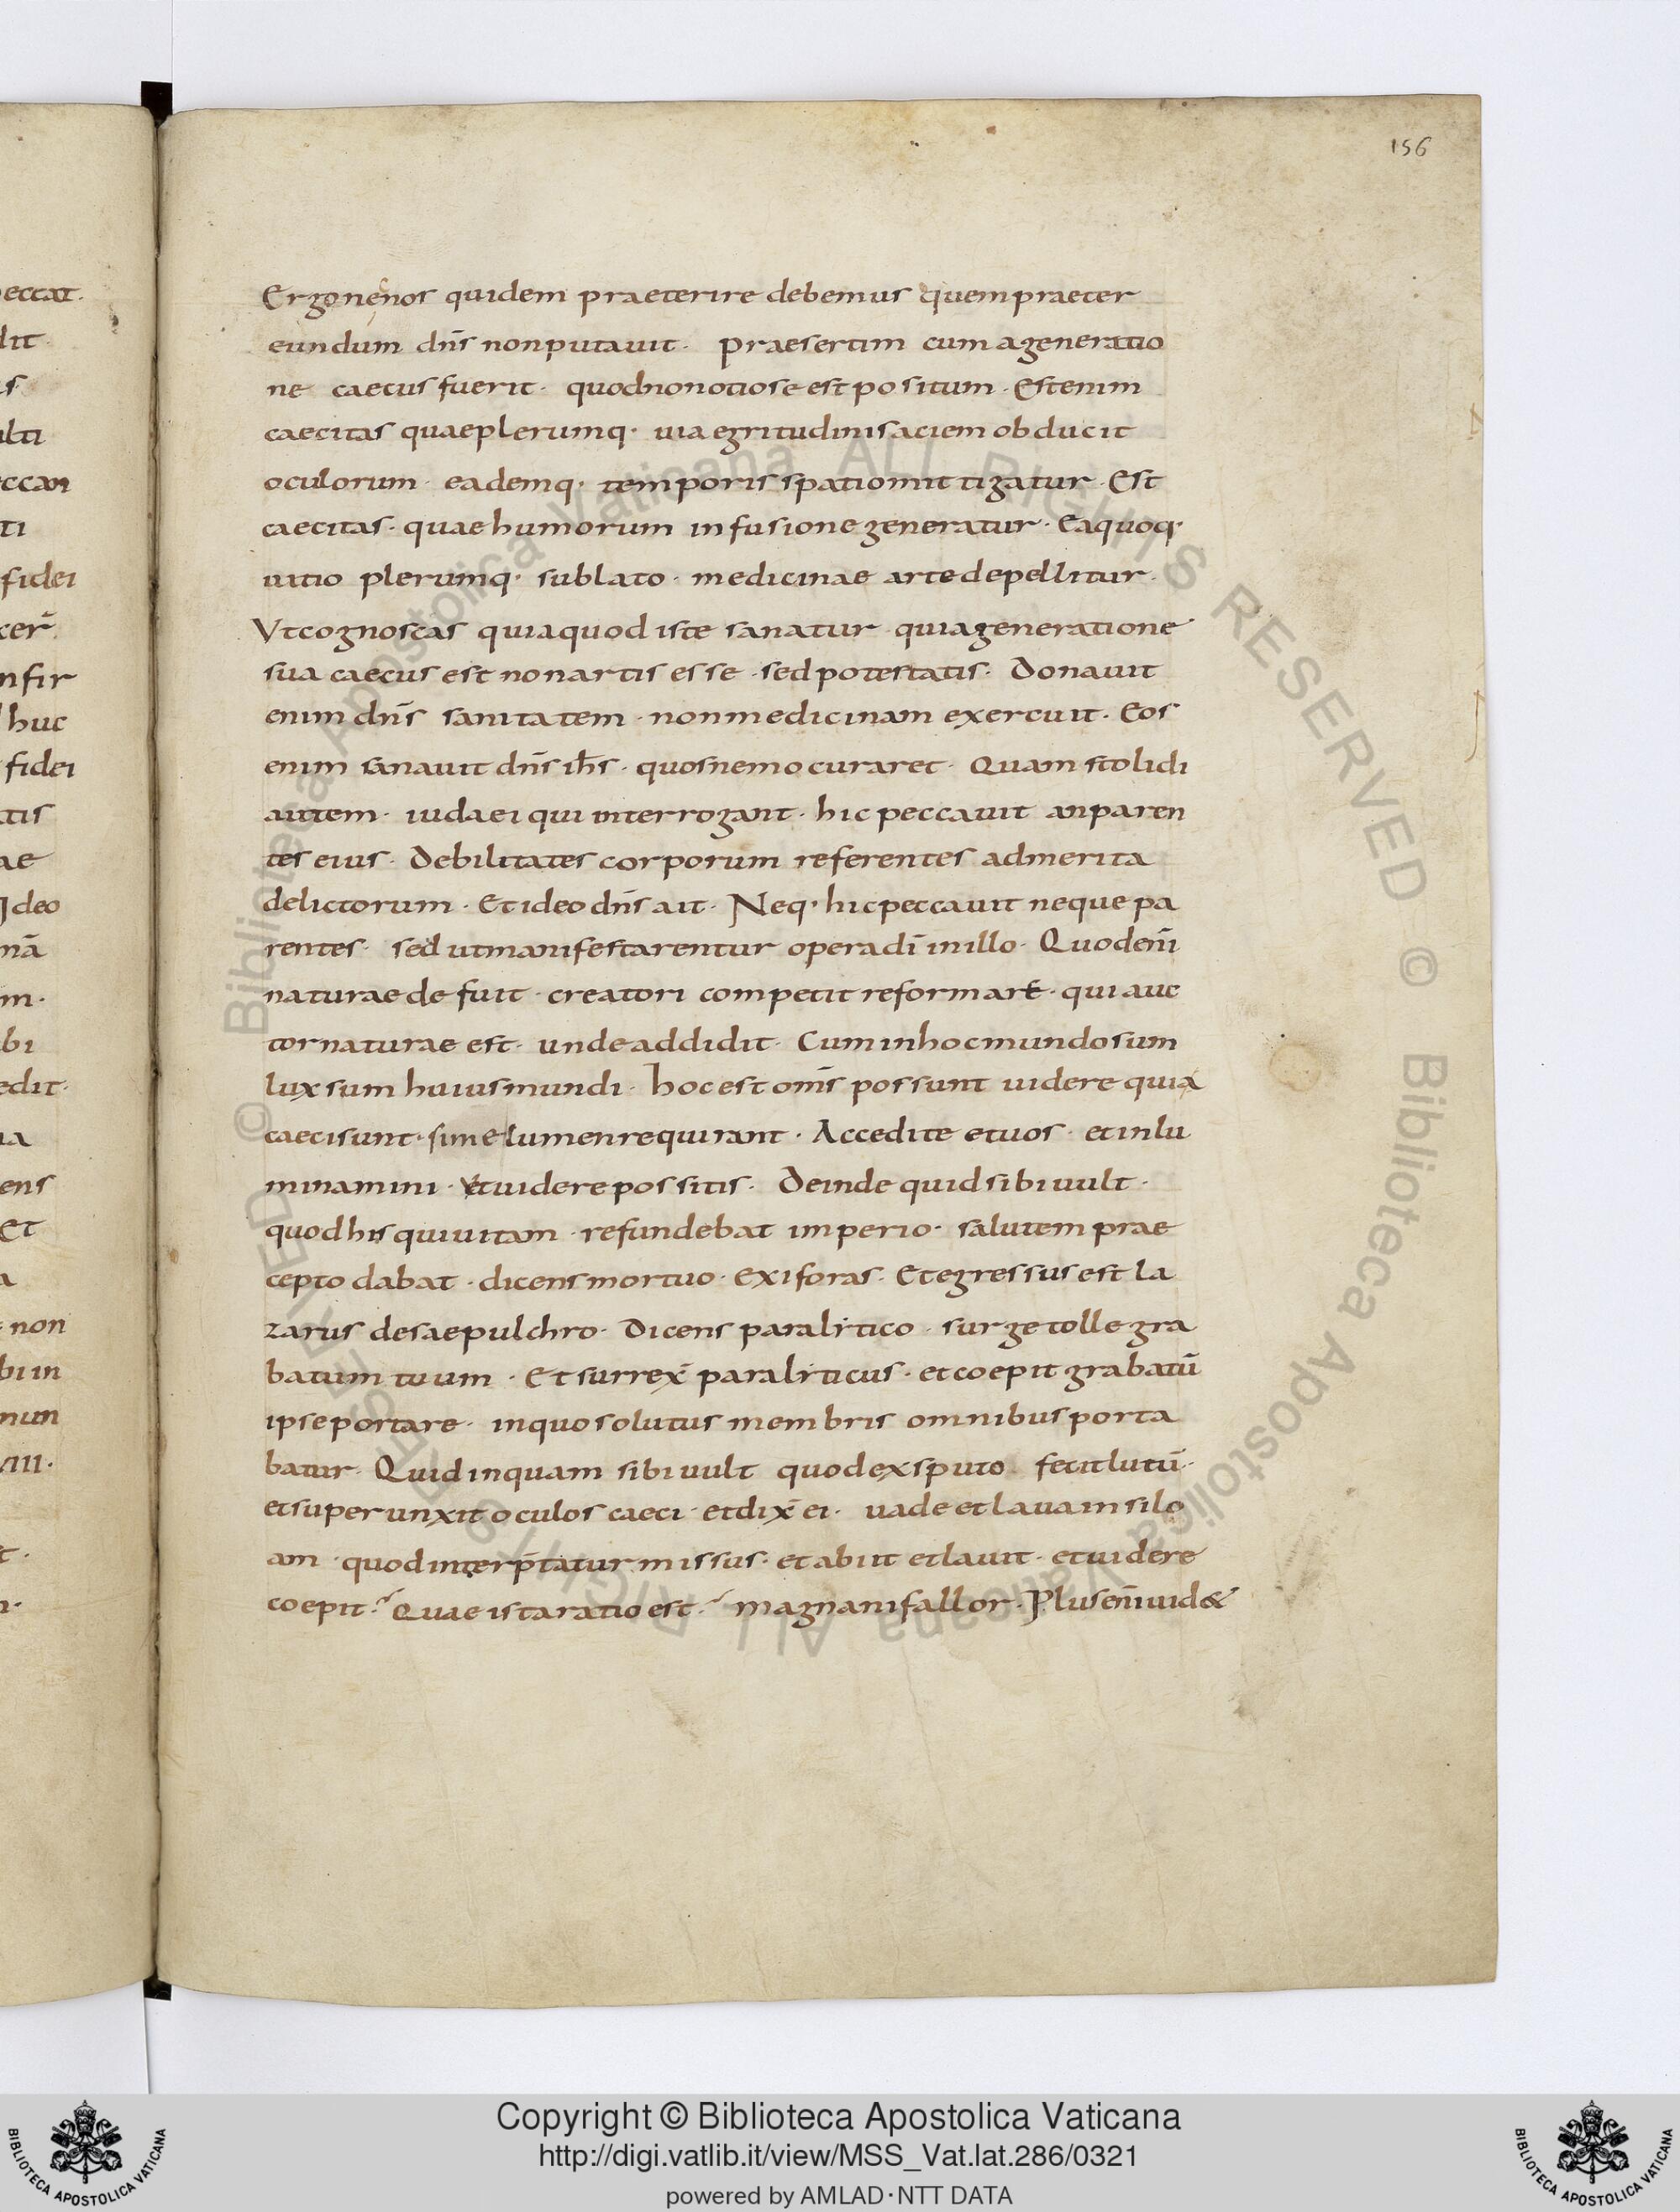 156
eccat.
dit
s
ulti
eccan
ti
fidei
cer̄
nfir
huc
fidei
tis
ae
Ideo
nā
m.
bi
edit.
ua
ens
Et
a
non
bi in
nun
VIII.
t.
Ergo ne nos quidem praeterire debemus quem praeter
eundum dn̄s non putauit. praesertim cum a generatio
ne caecus fuerit. quod non otiose est positum. Est enim
caecitas quae plerumq· uia egritudinis aciem obducit
oculorum. eademq· temporis spatio mittigatur. Est
caecitas. quae humorum infusione generatur. Ea quoq·
uitio plerumq· sublato. medicinae arte depellitur.
Vt cognoscas quia quod iste sanatur. qui a generatione
sua caecus est non artis esse. sed potestatis. Donauit
enim dn̄s sanitatem. non medicinam exercuit. Eos
enim sanauit dn̄s ih̄s. quos nemo curaret. Quam stolidi
autem. iudaei qui interrogant. hic peccauit an paren
tes eius. Debilitates corporum referentes ad merita
delictorum. Et ideo dn̄s ait. Neq· hic peccauit neque pa
rentes. sed ut manifestarentur opera dī in illo. Quod eni̅
naturae defuit. creatori competit reformare. qui auc
tor naturae est. unde addidit. Cum in hoc mundo sum
lux sum huius mundi. hoc est om̄s possunt uidere quia
caeci sunt. si me lumen requirant. Accedite et uos. et inlu
minamini. Vt uidere possitis. Deinde quid sibi uult.
quod his qui uitam. refundebat imperio. salutem prae
cepto dabat. dicens mortuo. exi foras. Et egressus est la
zarus de saepulchro. Dicens paralitico. surge tolle gra
batum tuum. Et surrex̄ paraliticus. et coepit grabatū
ipse portare. in quo solutus membris omnibus porta
batur. Quid inquam sibi uult quod ex sputo. fecit lutū.
et superunxit oculos caeci. et dix̄ ei. uade et laua in silo
am. quod interp̄tatur missus. et abiit et lauit. et uidere
coepit? Quae ista ratio est? magna ni fallor. Plus eni̅ uid&
© Biblioteca Apostolica Vaticana ALL RIGHTS RESERVED © Biblioteca Apostolica Vaticana ALL RIGHTS RESERVED
Copyright © Biblioteca Apostolica Vaticana
http://digi.vatlib.it/view/MSS_Vat.lat.286/0321
powered by AMLAD·NTT DATA
BIBLIOTECA APOSTOLICA VATICANA
BIBLIOTECA APOSTOLICA VATICANA